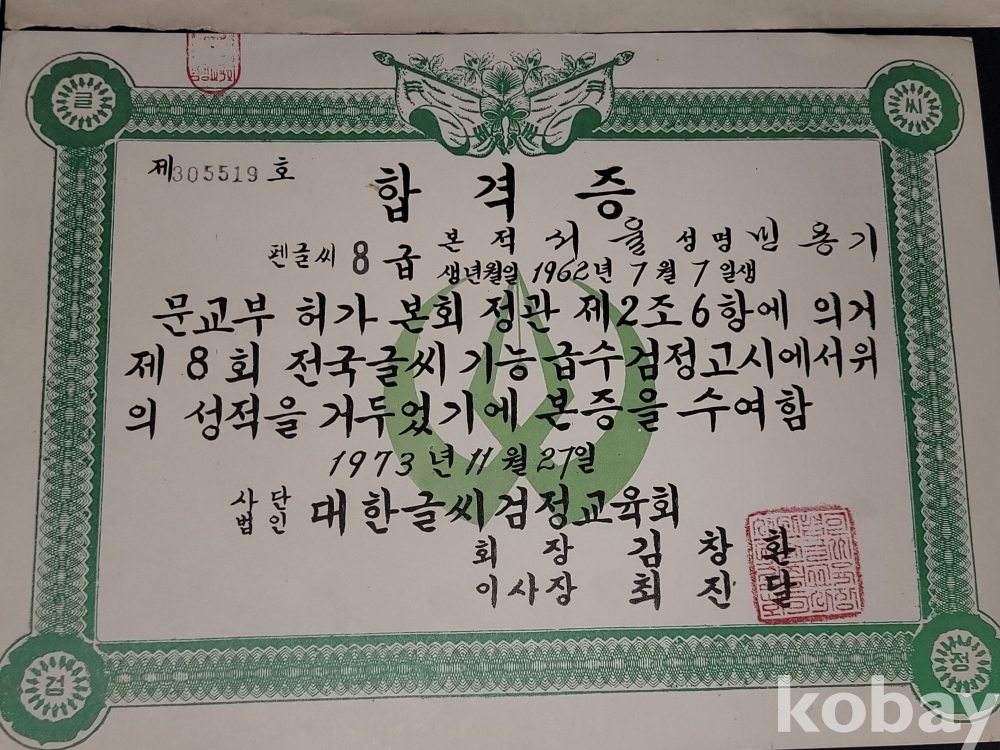 글 씨
제305519호
합격증
펜글씨 8급 본적 서울 성명 민용기
생년월일 1962년 7월 7일생
문교부 허가 본회 정관 제2조6항에 의거
제8회 전국글씨 기능급수검정고시에서위
의 성적을 거두었기에 본증을 수여함
1973년 11월 27일
사단법인 대한글씨검정교육회
회장 김창환
이사장 최진달
검 정
kobay